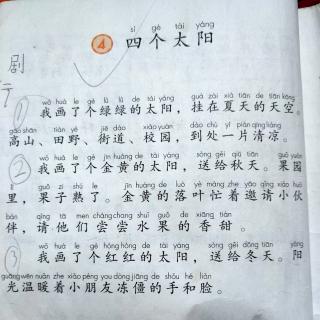 sì gè tài yáng
4 四个太阳
剧
①
wǒ huà le gè lǜ lǜ de tài yáng guà zài xià tiān de tiān kōng
我画了个绿绿的太阳，挂在夏天的天空。
gāo shān tián yě jiē dào xiào yuán dào chù yí piàn qīng liáng
高山、田野、街道、校园，到处一片清凉。
②
wǒ huà le gè jīn huáng de tài yáng sòng gěi qiū tiān guǒ yuán
我画了个金黄的太阳，送给秋天。果园
lǐ guǒ zi shú le jīn huáng de luò yè máng zhe yāo qǐng xiǎo huǒ
里，果子熟了。金黄的落叶忙着邀请小伙
bàn qǐng tā men cháng chang shuǐ guǒ de xiāng tián
伴，请他们尝尝水果的香甜。
③
wǒ huà le gè hóng hóng de tài yáng sòng gěi dōng tiān yáng
我画了个红红的太阳，送给冬天。阳
guāng wēn nuǎn zhe xiǎo péng yǒu dòng jiāng de shǒu hé liǎn
光温暖着小朋友冻僵的手和脸。